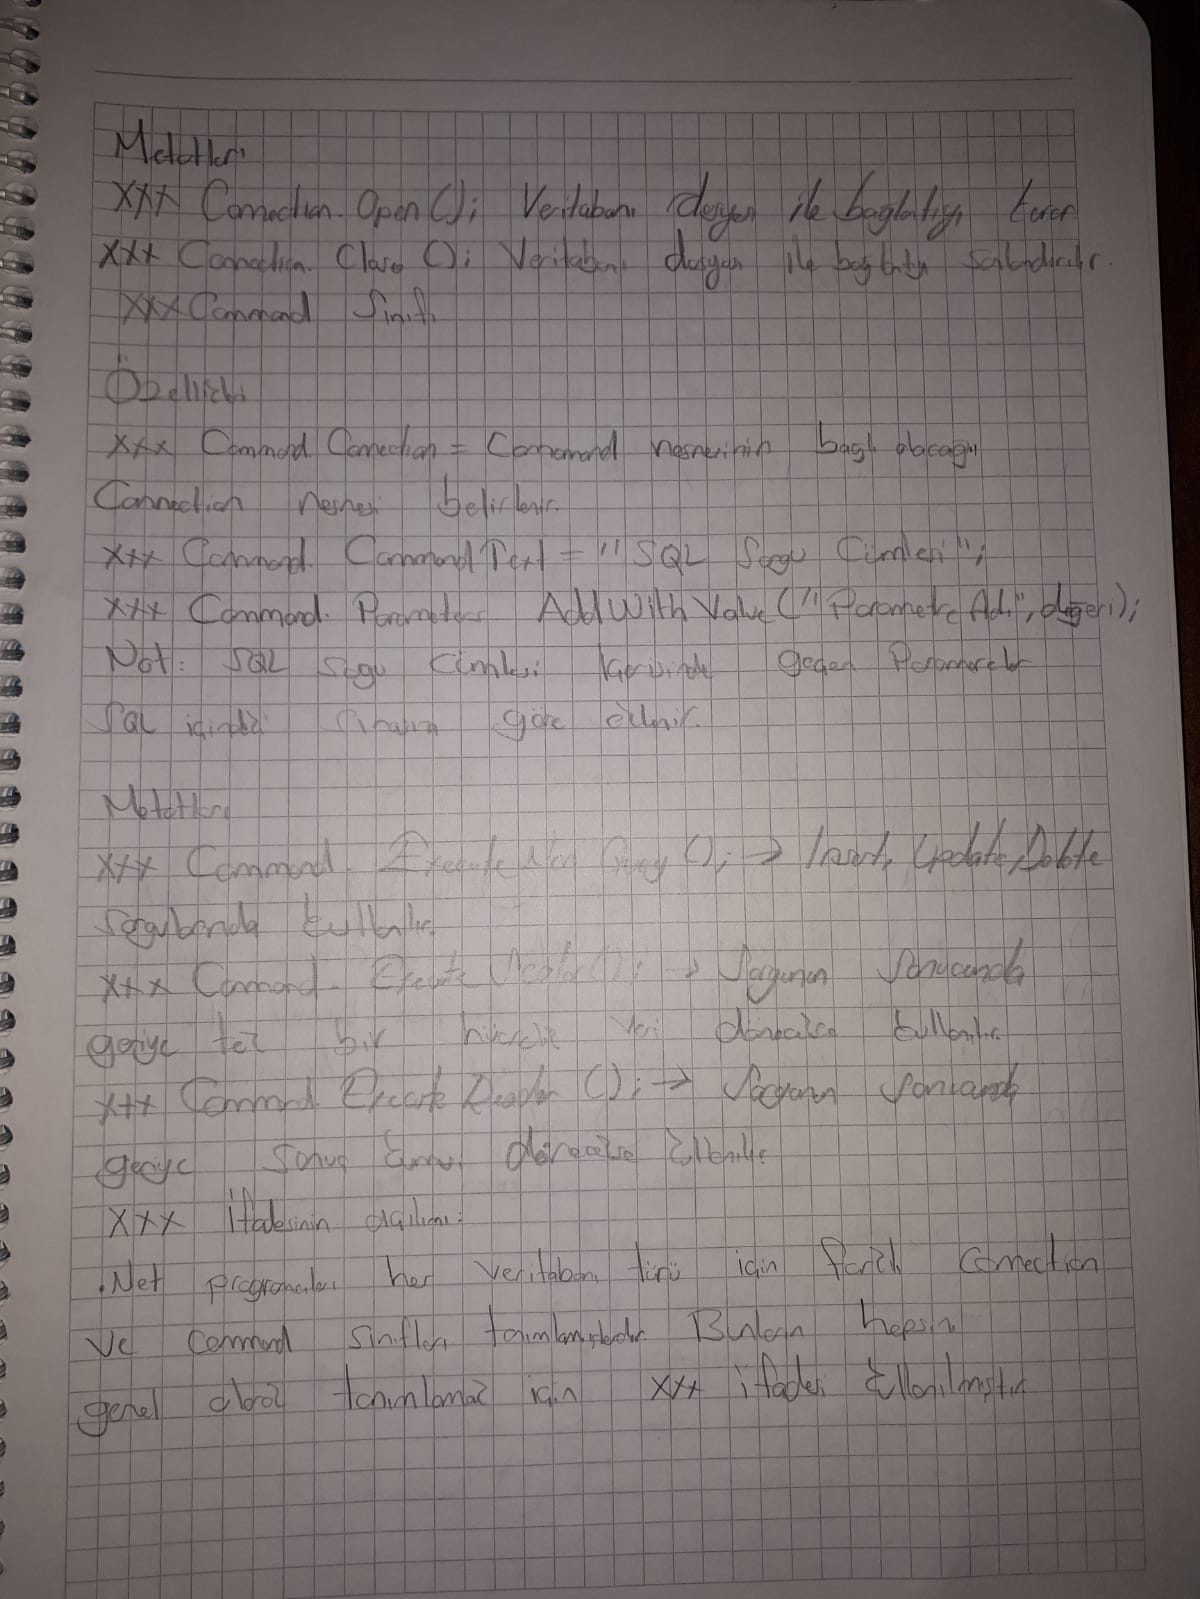 Metotları
XXX Connection. Open (); Veritabanı dosyası ile bağlantıyı kurar
XXX Connection. Close (); Veritabanı dosyası ile bağlantıyı sonlandırır.
XXX Command Sınıfı
Özellikleri
XXX Command. Connection = Command nesnesinin bağlı olacağı
Connection nesnesi belirlenir.
XXX Command. CommandText = "SQL Sorgu Cümlesi";
XXX Command. Parameters AddWithValue ("Parametre Adı", değeri);
Not: SQL sorgu cümlesi içerisinde geçen Parametreler
SQL içindeki sırasına göre eklenir.
Metotları
XXX Command. Execute Non Query (); → Insert, Update, Delete
Sorgularında kullanılır.
XXX Command. Execute Scalar (); → Sorgunun Sonucunda
geriye tek bir hücrelik veri dönecekse kullanılır.
XXX Command. Execute Reader (); → Sorgunun sonucunda
geriye sonuç dönecekse kullanılır.
XXX İfadesinin açılımı:
.Net programcıları her veritabanı türü için farklı Connection
ve command sınıfları tanımlamışlardır. Bunların hepsini
genel olarak tanımlamak için XXX ifadesi kullanılmıştır